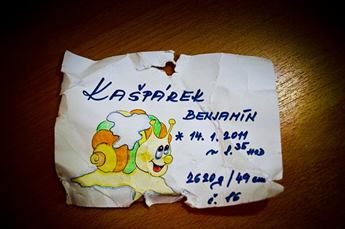 KAŠPÁREK
BENJAMÍN
* 14. 1. 2011
~ 1.35 HOD
2620g/49 cm
č. 16